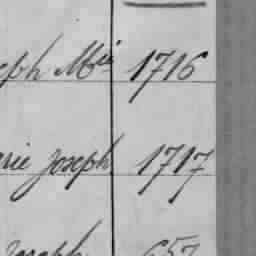 eph Mie 1716
rie Joseph 1717
Joseph 657